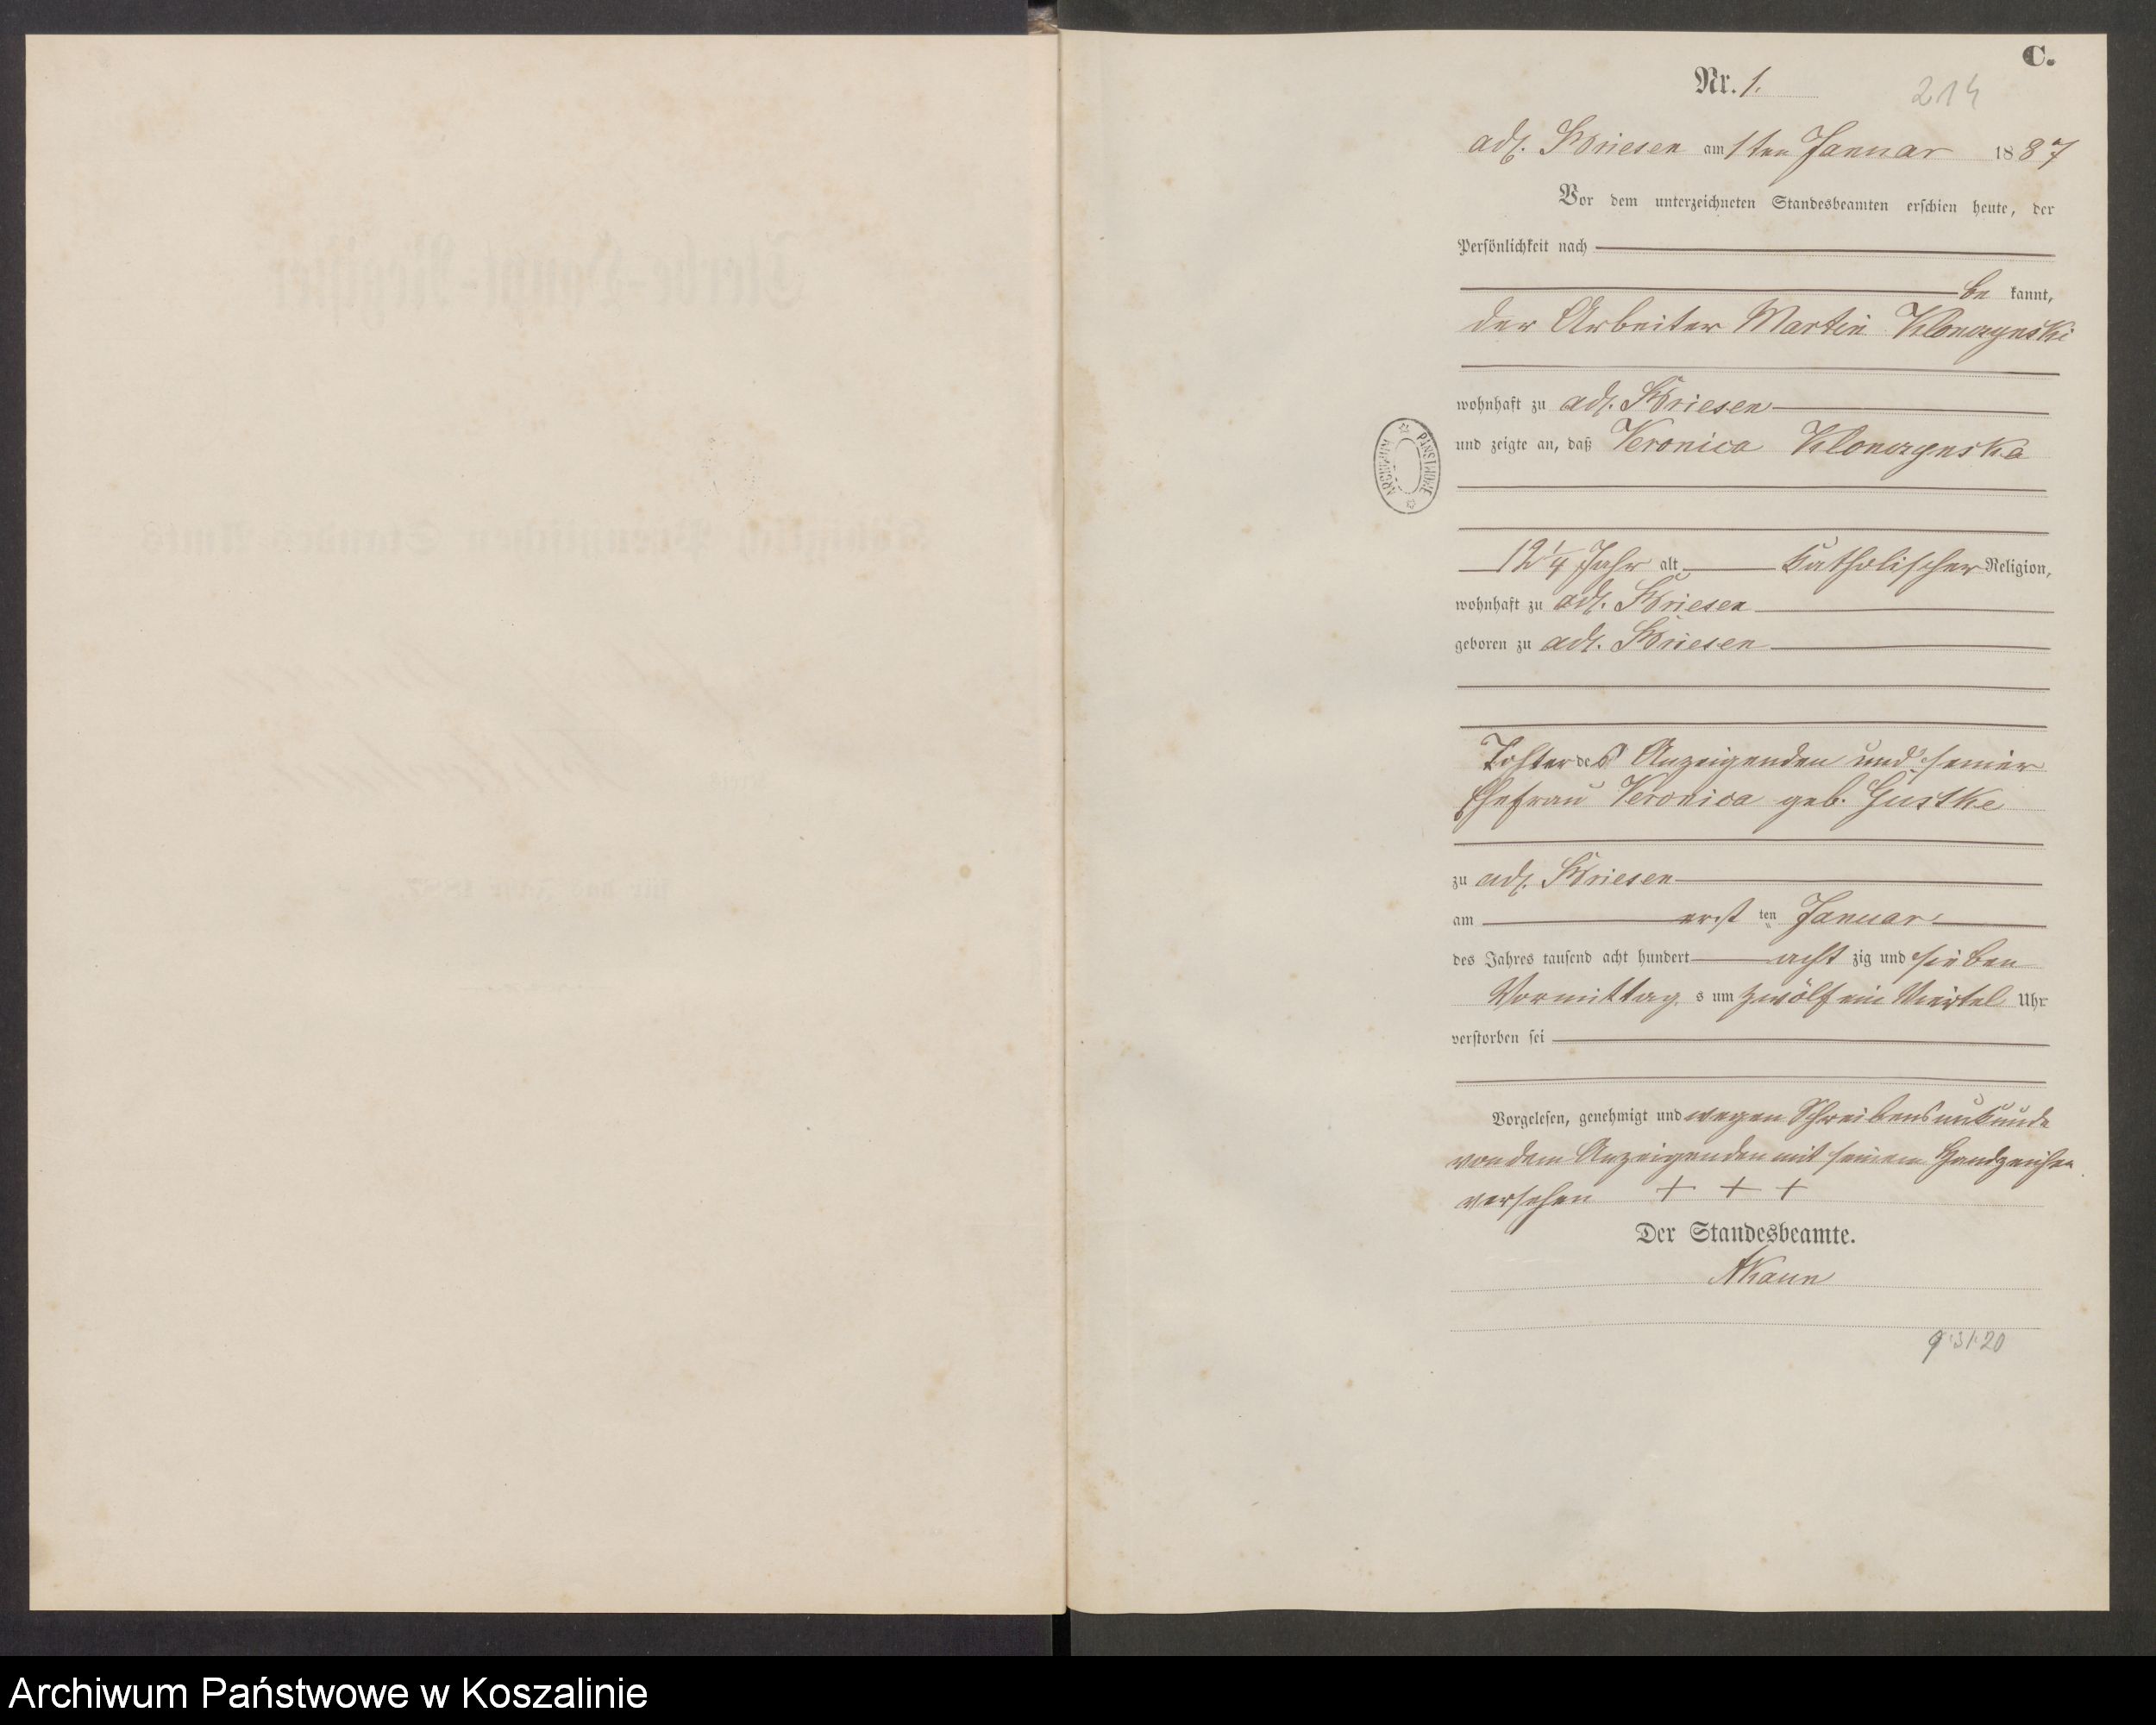 C.
Nr. 1.
214
adl. Briesen am 1ten Januar 1887
Vor dem unterzeichneten Standesbeamten erschien heute, der
Persönlichkeit nach
be kannt,
der Arbeiter Martin Klonczynski
wohnhaft zu adl. Briesen
und zeigte an, daß Veronica Klonczynska
12 1/4 Jahr alt katholischer Religion,
wohnhaft zu adl. Briesen
geboren zu adl. Briesen
Tochter des Anzeigenden und seiner
Ehefrau Veronica geb. Gustke
zu adl. Briesen
am erst ten Januar
des Jahres tausend acht hundert acht zig und sieben
Vormittag s um zwölf ein Viertel Uhr
verstorben sei
Vorgelesen, genehmigt und wegen Schreibensunkunde
von dem Anzeigenden mit seinem Handzeichen
versehen + + +
Der Standesbeamte.
ARCHIWUM PAŃSTWOWE
Archiwum Państwowe w Koszalinie